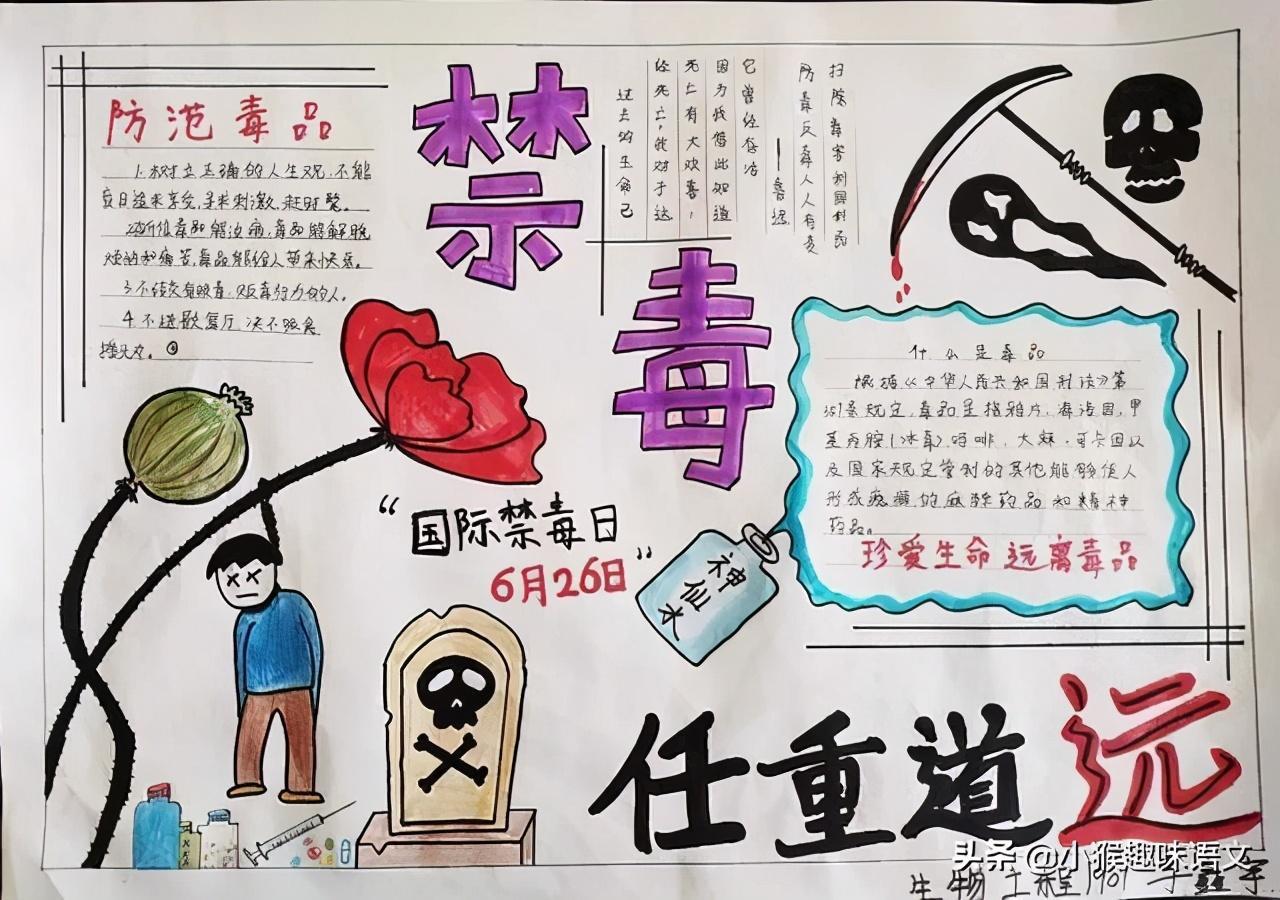 防范毒品
1.树立正确的人生观,不能
盲目追求享受,寻求刺激,赶时髦。
毒品能治病,毒品能解脱
烦恼和痛苦,毒品能给人带来快乐。
3.不结交有吸毒、贩毒行为的人。
4.不进歌舞厅,决不吸食
摇头丸。
禁
毒
扫除毒害利国利民
防毒反毒人人有责
——鲁迅
它曾经存活
因为我借此知道
死亡有大欢喜,
经死亡,我对于这
过去的生命已
什么是毒品
根据《中华人民共和国刑法》第
条规定,毒品是指鸦片、海洛因、甲
基苯丙胺(冰毒)吗啡、大麻、可卡因以
及国家规定管制的其他能够使人
形成瘾癖的麻醉药品和精神
药品。
珍爱生命 远离毒品
“国际禁毒日
6月26日”
神仙水
任重道远
头条 @小猴趣味语文
生物工程1901